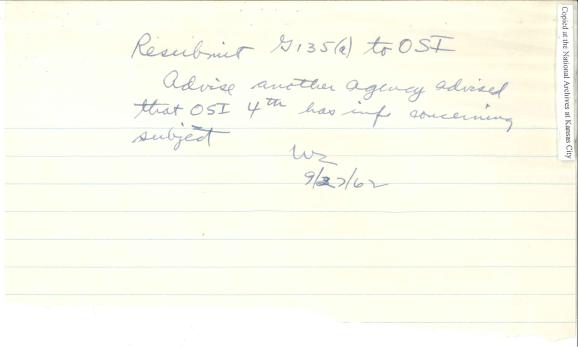 Resubmit G135(a) to OSI
Advise another agency advised
that OSI 4th has info concerning
subject
WZ
9/27/62
Copied at the National Archives at Kansas City